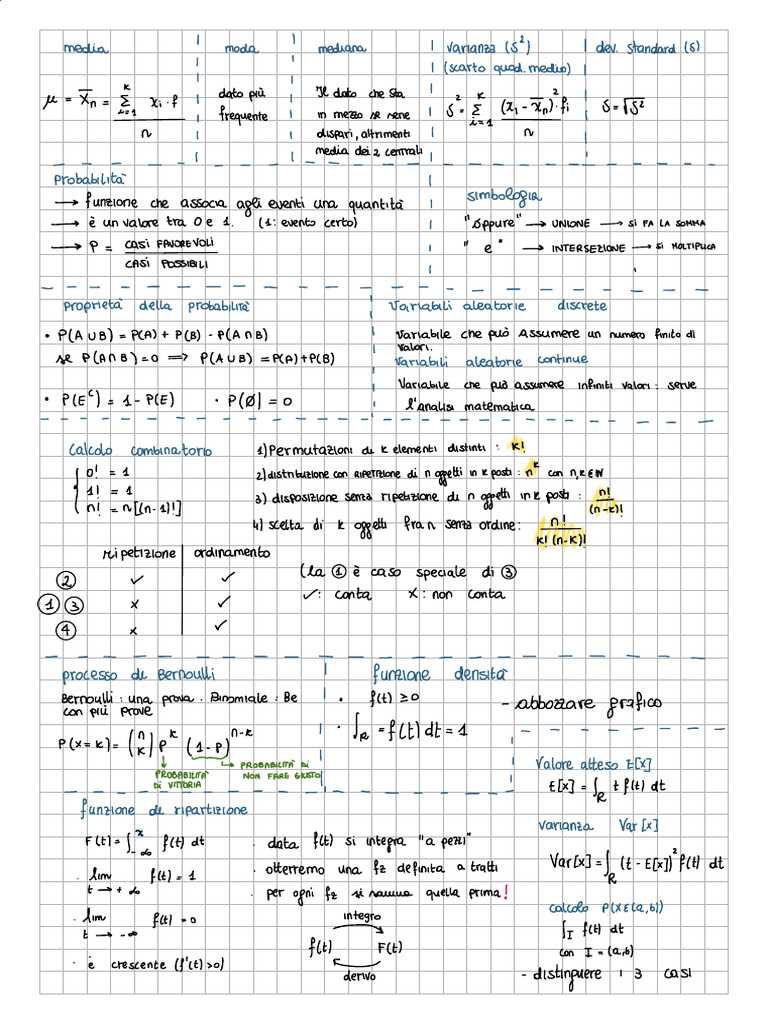 media
μ = X̅ₙ = Σ_{i=1}^{k} xᵢ · f / n
moda
dato più
frequente
mediana
Il dato che sta
in mezzo se sono
dispari, altrimenti
media dei 2 centrali
varianza (δ²)
(scarto quad. medio)
δ² = Σ_{i=1}^{k} (x₁ - X̅ₙ)² · fᵢ / n
dev. standard (δ)
δ = √δ²
Probabilità
→ funzione che associa agli eventi una quantità
→ è un valore tra 0 e 1. (1: evento certo)
→ P = CASI FAVOREVOLI / CASI POSSIBILI
simbologia
"oppure" → UNIONE → SI FA LA SOMMA
"e" → INTERSEZIONE → SI MOLTIPLICA
Proprietà della probabilità
• P(A ∪ B) = P(A) + P(B) - P(A ∩ B)
se P(A ∩ B) = 0 ⟹ P(A ∪ B) = P(A) + P(B)
• P(Eᶜ) = 1 - P(E) • P(∅) = 0
Variabili aleatorie discrete
Variabile che può Assumere un numero finito di
valori.
Variabili aleatorie continue
Variabile che può assumere infiniti valori: serve
l'analisi matematica
Calcolo combinatorio
0! = 1
1! = 1
n! = n[(n-1)!]
1) Permutazioni di k elementi distinti : k!
2) distribuzione con RIPETIZIONE di n oggetti in k posti : nᵏ con n, k ∈ ℕ
3) disposizione senza ripetizione di n oggetti in k posti : n! / (n-k)!
4) scelta di k oggetti fra n senza ordine: n! / k! (n-k)!
ripetizione ordinamento
② ✓ ✓
① ③ x ✓
④ x ✓
(la ① è caso speciale di ③
✓: conta x: non conta
processo di Bernoulli
Bernoulli : una prova . Binomiale : Be
con più prove
P(x = k) = (n k) Pᵏ (1 - P)ⁿ⁻ᵏ
PROBABILITÀ
DI VITTORIA
PROBABILITÀ DI
NON FARE GIUSTO
funzione densità
• f(t) ≥ 0
• ∫_R = f(t) dt = 1
- abbozzare grafico
Valore atteso E[x]
E[x] = ∫_R t f(t) dt
varianza Var[x]
Var[x] = ∫_R (t - E[x])² f(t) dt
calcolo P(X∈(a,b))
∫_I f(t) dt
con I = (a,b)
- distinguere i 3 casi
funzione di ripartizione
F(t) = ∫_{-∞}^{x} f(t) dt
• lim_{t → +∞} f(t) = 1
• lim_{t → -∞} f(t) = 0
• è crescente (f'(t) > 0)
• data f(t) si integra "a pezzi"
• otterremo una fz definita a tratti
• per ogni fz si somma quella prima!
integro
f(t) F(t)
derivo